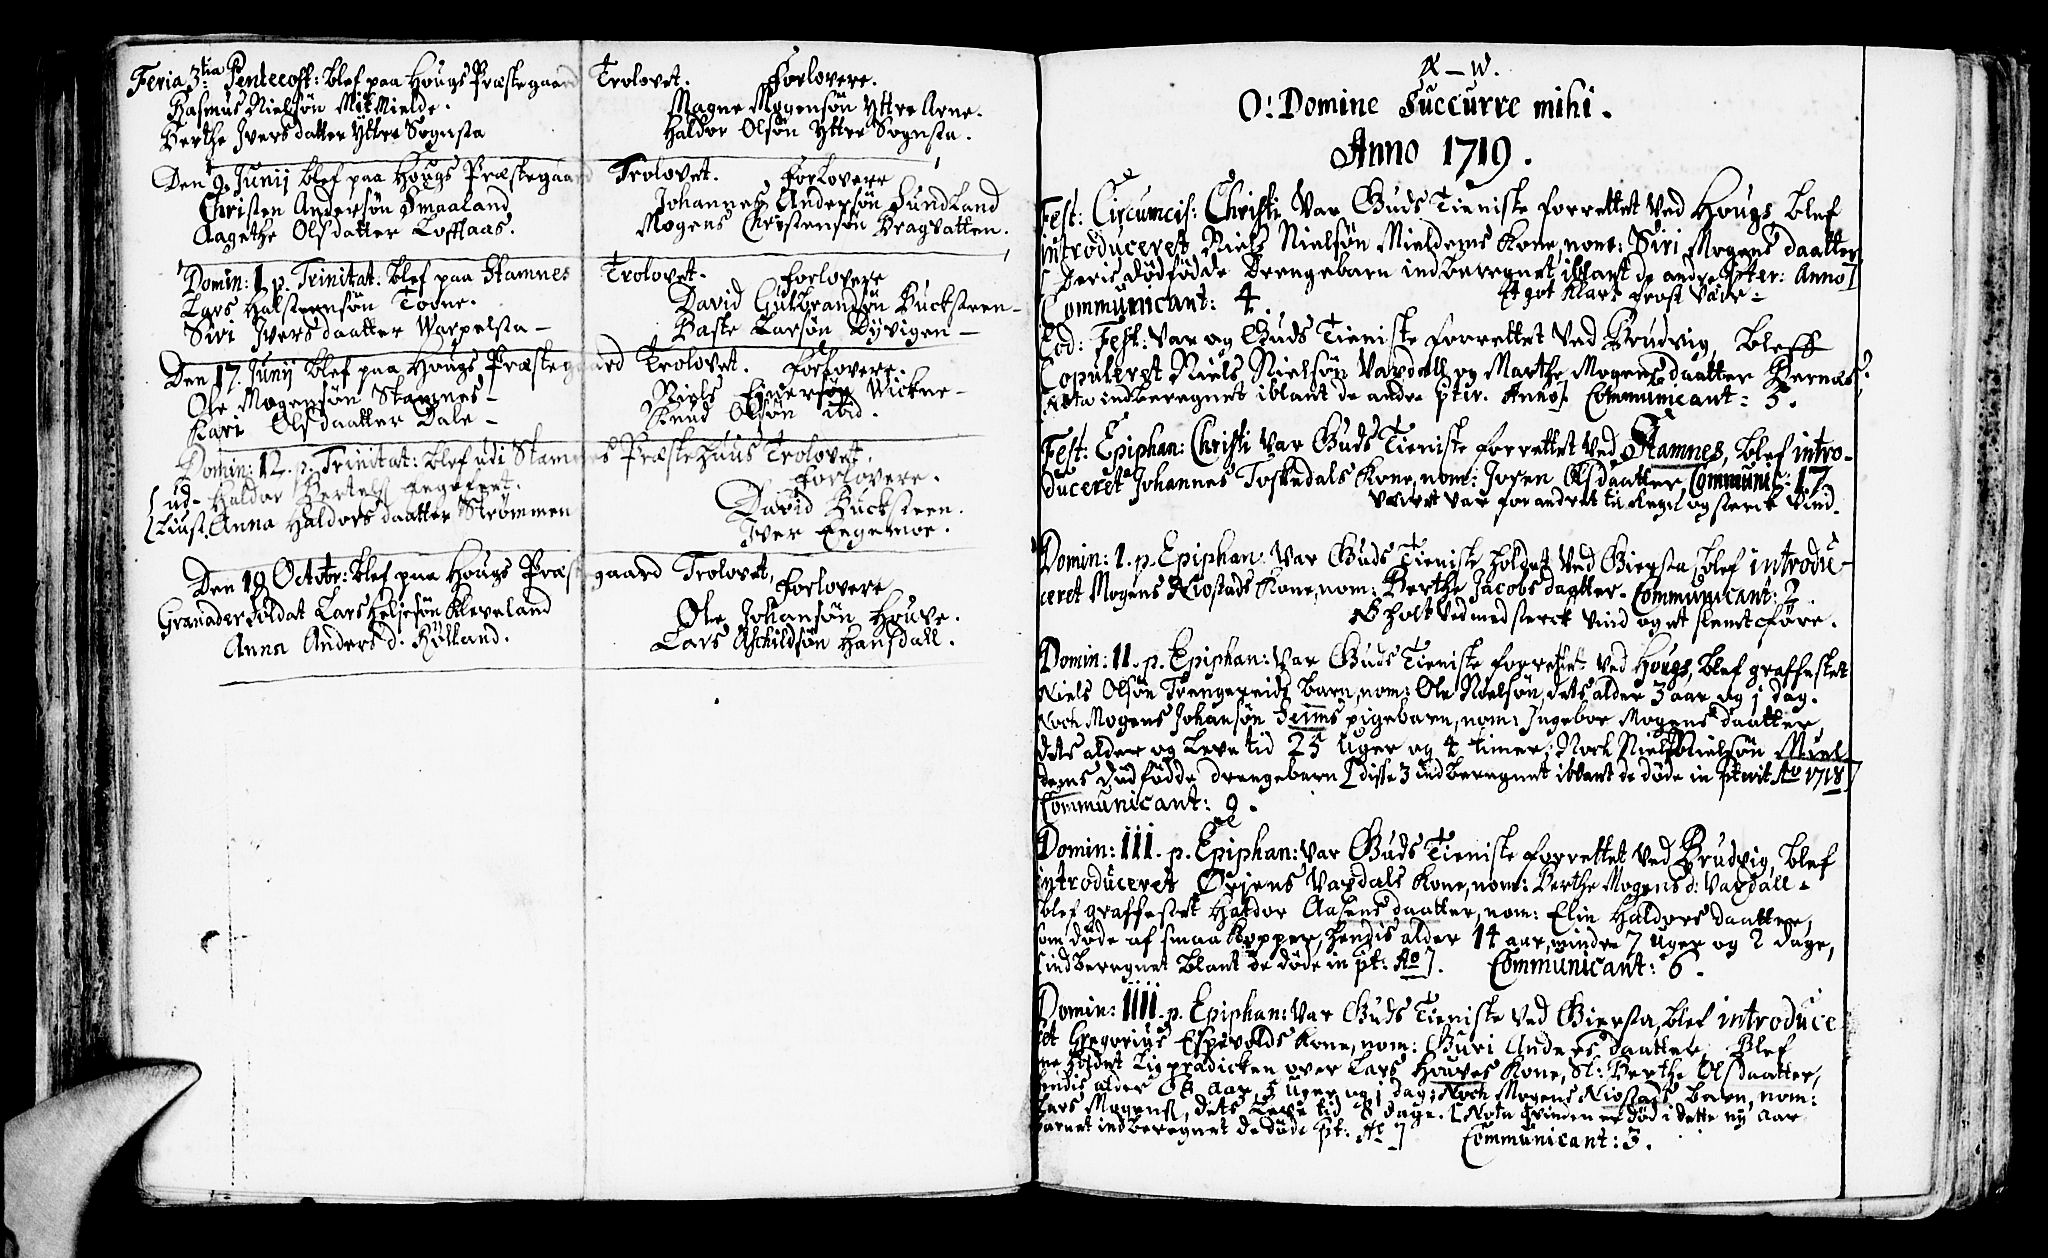 Feria 3tia Pentecost: blef paa Hougs Præstegaard Trolovet. Forlovere.
Rasmus Nielsøn Mit Mielde. Magne Mogensøn Yttre Arne.
Berthe Iversdatter Ytter Sognsta Haldor Olsøn Ytter Sognsta.
Den 9. Junij blef paa Hougs Præstegaard Trolovet. Forlovere
Christen Andersøn Smaaland Johannes Andersøn Sundland
Aagethe Olsdatter Loftaas. Mogens Christensøn Bragvatten.
Domin: 1. p. Trinitat. blef paa Stamnes Trolovet. Forlovere
Lars Halsteensøn Todne. David Gulbrandsøn Bucksteen
Siri Iversdaatter Warpelsta Baste Larsøn Dyvigen
Den 17. Junij blef paa Hougs Præstegaard Trolovet. Forlovere.
Ole Mogensøn Stamnes Niels Endersøn Wickne
Kari Olsdaatter Dale Knud Olsøn ibid.
Domin: 12. p. Trinitat: blef udi Stamnes Præstehuus Trolovet.
Forlovere.
ud- Haldor Bertels
liust. Anna Haldorsdaatter Strømmen David Bucksteen.
Iver Eegemoe.
Den 19 Octobr: blef paa Hougs Præstegaard Trolovet, Forlovere
Granader Soldat Lars Heljesøn Kleveland Ole Johansøn Houve.
Anna Anders d. Rølland. Lars Aschildsøn Hansdall.
O! Domine Succurre mihi.
Anno 1719.
Fest: Circumcis: Christi Var Guds Tieniste forrettet Ved Hougs, blef
introduceret Niels Nielsøn Mieldems Kone, nom: Siri Mogensdaatter
Deris dødfødde Drengebarn indberegnet iblant de andre pter: Anno]
Communicant: 4. Et got klart frost Vær
Eod: Fest: Var og Guds Tieniste forrettet Ved Brudvig, bleff
Copuleret Niels Nielsøn Vaxdall og Marthe Mogensdaatter Bernæs
indberegnet iblant de andre pter. Anno]. Communicant: 5.
Fest: Epiphan: Christi Var Guds Tieniste forrettet Ved Stamnes, blef intro-
duceret Johannes Toskedals Kone, nom: Joren Olsdaatter, Communic: 17
Væiret var forandret til Regn og sterck Vind.
Domin: 1. p. Epiphan Var Guds Tieniste holdet Ved Giersta, blef introdu-
ceret Mogens Niostads Kone, nom: Berthe Jacobsdaatter. Communicant: 2.
holt Ved med sterck Vind og et slemt føre.
Domin: II. p. Epiphan: Var Guds Tieniste forrettet Ved Hougs, blef graffestet
Niels Olsøn Trengereidz barn, nom: Ole Nielsøn, dets alder 3 aar og j dag.
Noch Mogens Johansøn pigebarn, nom: Ingebor Mogensdaatter
dets alder og leve tid 25 Uger og 4 timer; Noch Niels Nielsøn Miel
dems dødfødde drengebarn [disse 3 indberegnet iblant de døde in Ao 1718]
Communicant: 9.
Domin: III. p. Epiphan: Var Guds Tieniste forrettet Ved Brudvig, blef
introduceret Ørjens Vaxdals Kone, nom: Berthe Mogens d: Vaxdall.
blef graffestet Haldor Aasens daatter, nom: Elin Haldorsdaatter,
som døde af smaa Kopper, hendis alder 14 aar, mindre 7 Uger og 2 dage,
[indberegnet blant de døde in pt: Ao]. Communicant: 6.
Domin: IIII. p. Epiphan: Var Guds Tieniste Ved Giersta, blef introduce
ret Gregorius Espevolds Kone, nom: Guri Andersdaatter, Blef
holdet Ligprædicken over Lars Houves Kone, Sl: Berthe Olsdaatter,
hendis alder aar, 5 uger og j dag; Noch Mogens Niostads barn, nom:
Lars Mogens, dets Leve tid 8 dage. [Nota Qvinden er død i dette ny aar
barnet indberegnet de døde pt: Ao] Communicant: 3.